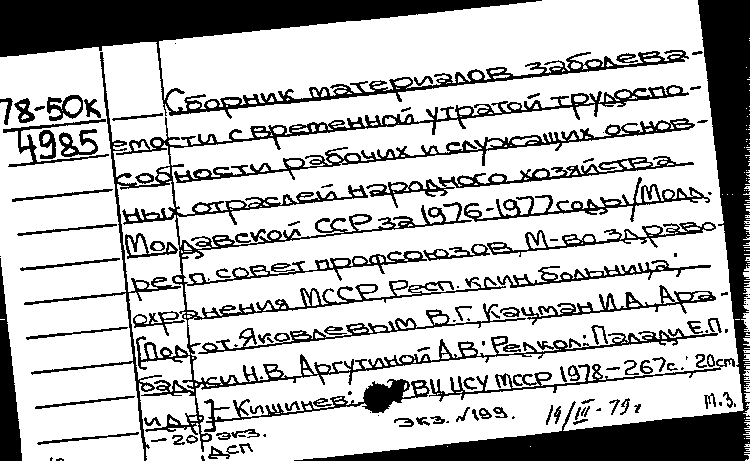 78-50к
4985
Сборник материалов заболева-
емости с временной утратой трудоспо-
собности рабочих и служащих основ-
ных отраслей народного хозяйства
Молдавской ССР за 1976-1977 годы/Молд.
респ. совет профсоюзов, М-во здраво-
охранения МССР, Респ. клин. больница;
[Подгот. Яковлевым В.Г., Кацман И.А., Ара-
баджи Н.В., Аргутиной А.В.; Редкол: Палади Е.П.
и др.]- Кишинев: РВЦ ЦСУ МССР, 1978.-267с.; 20см.
-200 экз. экз. №199. 14/III-79г М.З.
ДСП